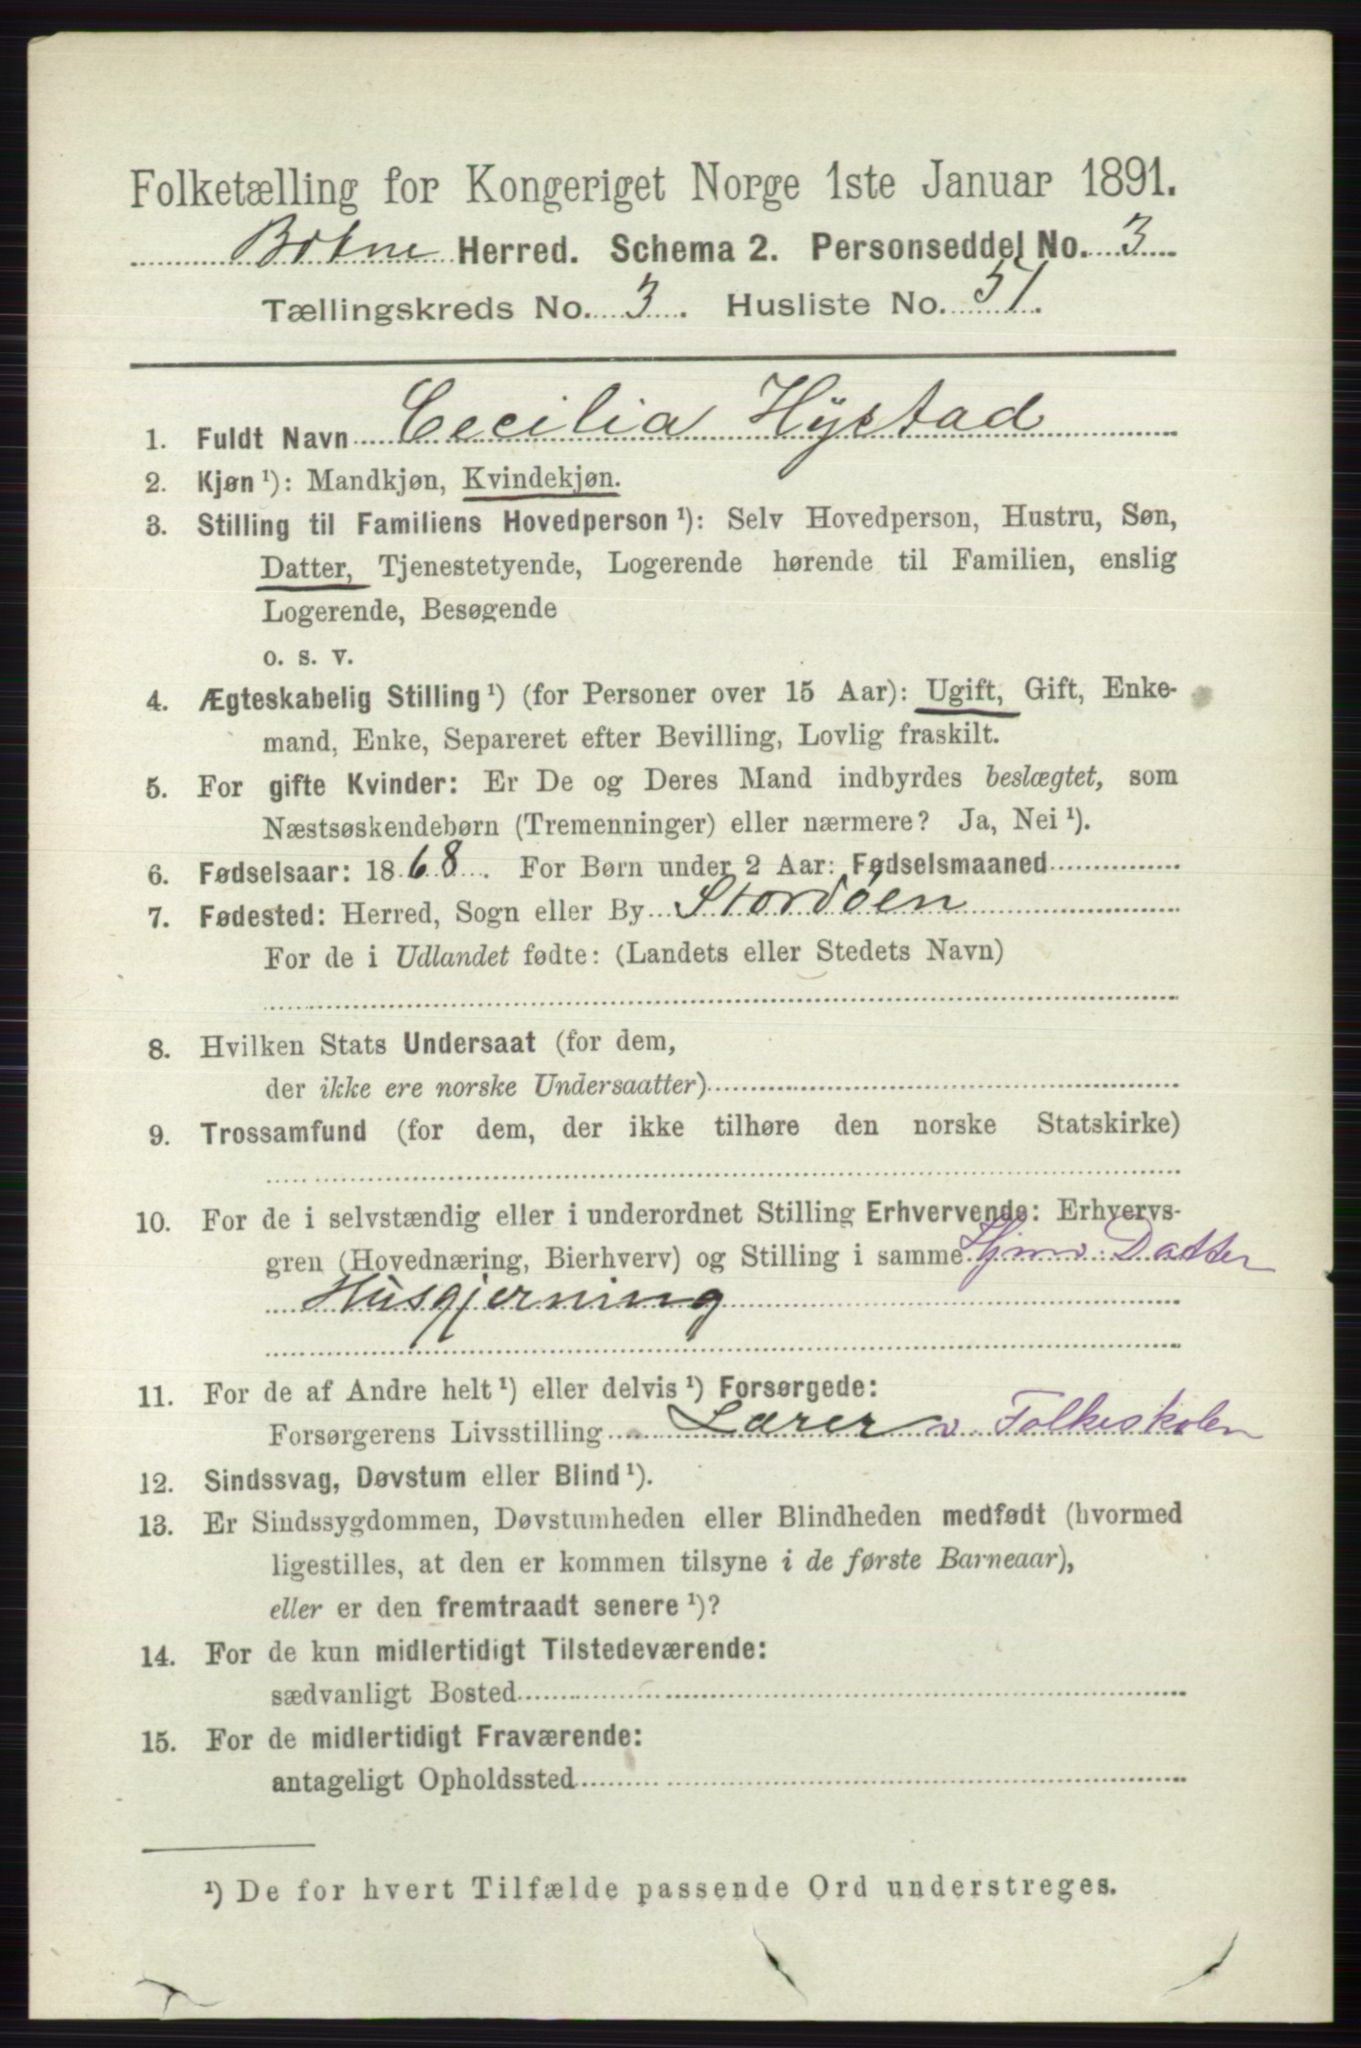 Folketælling for Kongeriget Norge 1ste Januar 1891.
Botne Herred. Schema 2. Personseddel No. 3
Tællingskreds No. 3. Husliste No. 51.
1. Fuldt Navn Cecilia Hystad
2. Kjøn ¹): Mandkjøn, Kvindekjøn.
3. Stilling til Familiens Hovedperson ¹): Selv Hovedperson, Hustru, Søn,
Datter, Tjenestetyende, Logerende hørende til Familien, enslig
Logerende, Besøgende
o. s. v.
4. Ægteskabelig Stilling ¹) (for Personer over 15 Aar): Ugift, Gift, Enke-
mand, Enke, Separeret efter Bevilling, Lovlig fraskilt.
5. For gifte Kvinder: Er De og Deres Mand indbyrdes beslægtet, som
Næstsøskendebørn (Tremenninger) eller nærmere? Ja, Nei ¹).
6. Fødselsaar: 1868. For Børn under 2 Aar: Fødselsmaaned
7. Fødested: Herred, Sogn eller By Stordöen
For de i Udlandet fødte: (Landets eller Stedets Navn)
8. Hvilken Stats Undersaat (for dem,
der ikke ere norske Undersaatter)
9. Trossamfund (for dem, der ikke tilhøre den norske Statskirke)
10. For de i selvstændig eller i underordnet Stilling Erhvervende: Erhvervs-
gren (Hovednæring, Bierhverv) og Stilling i samme Hjmv. Datter
Husgjerning
11. For de af Andre helt ¹) eller delvis ¹) Forsørgede:
Forsørgerens Livsstilling Lærer v. Folkeskolen
12. Sindssvag, Døvstum eller Blind ¹).
13. Er Sindssygdommen, Døvstumheden eller Blindheden medfødt (hvormed
ligestilles, at den er kommen tilsyne i de første Barneaar),
eller er den fremtraadt senere ¹)?
14. For de kun midlertidigt Tilstedeværende:
sædvanligt Bosted
15. For de midlertidigt Fraværende:
antageligt Opholdssted
¹) De for hvert Tilfælde passende Ord understreges.